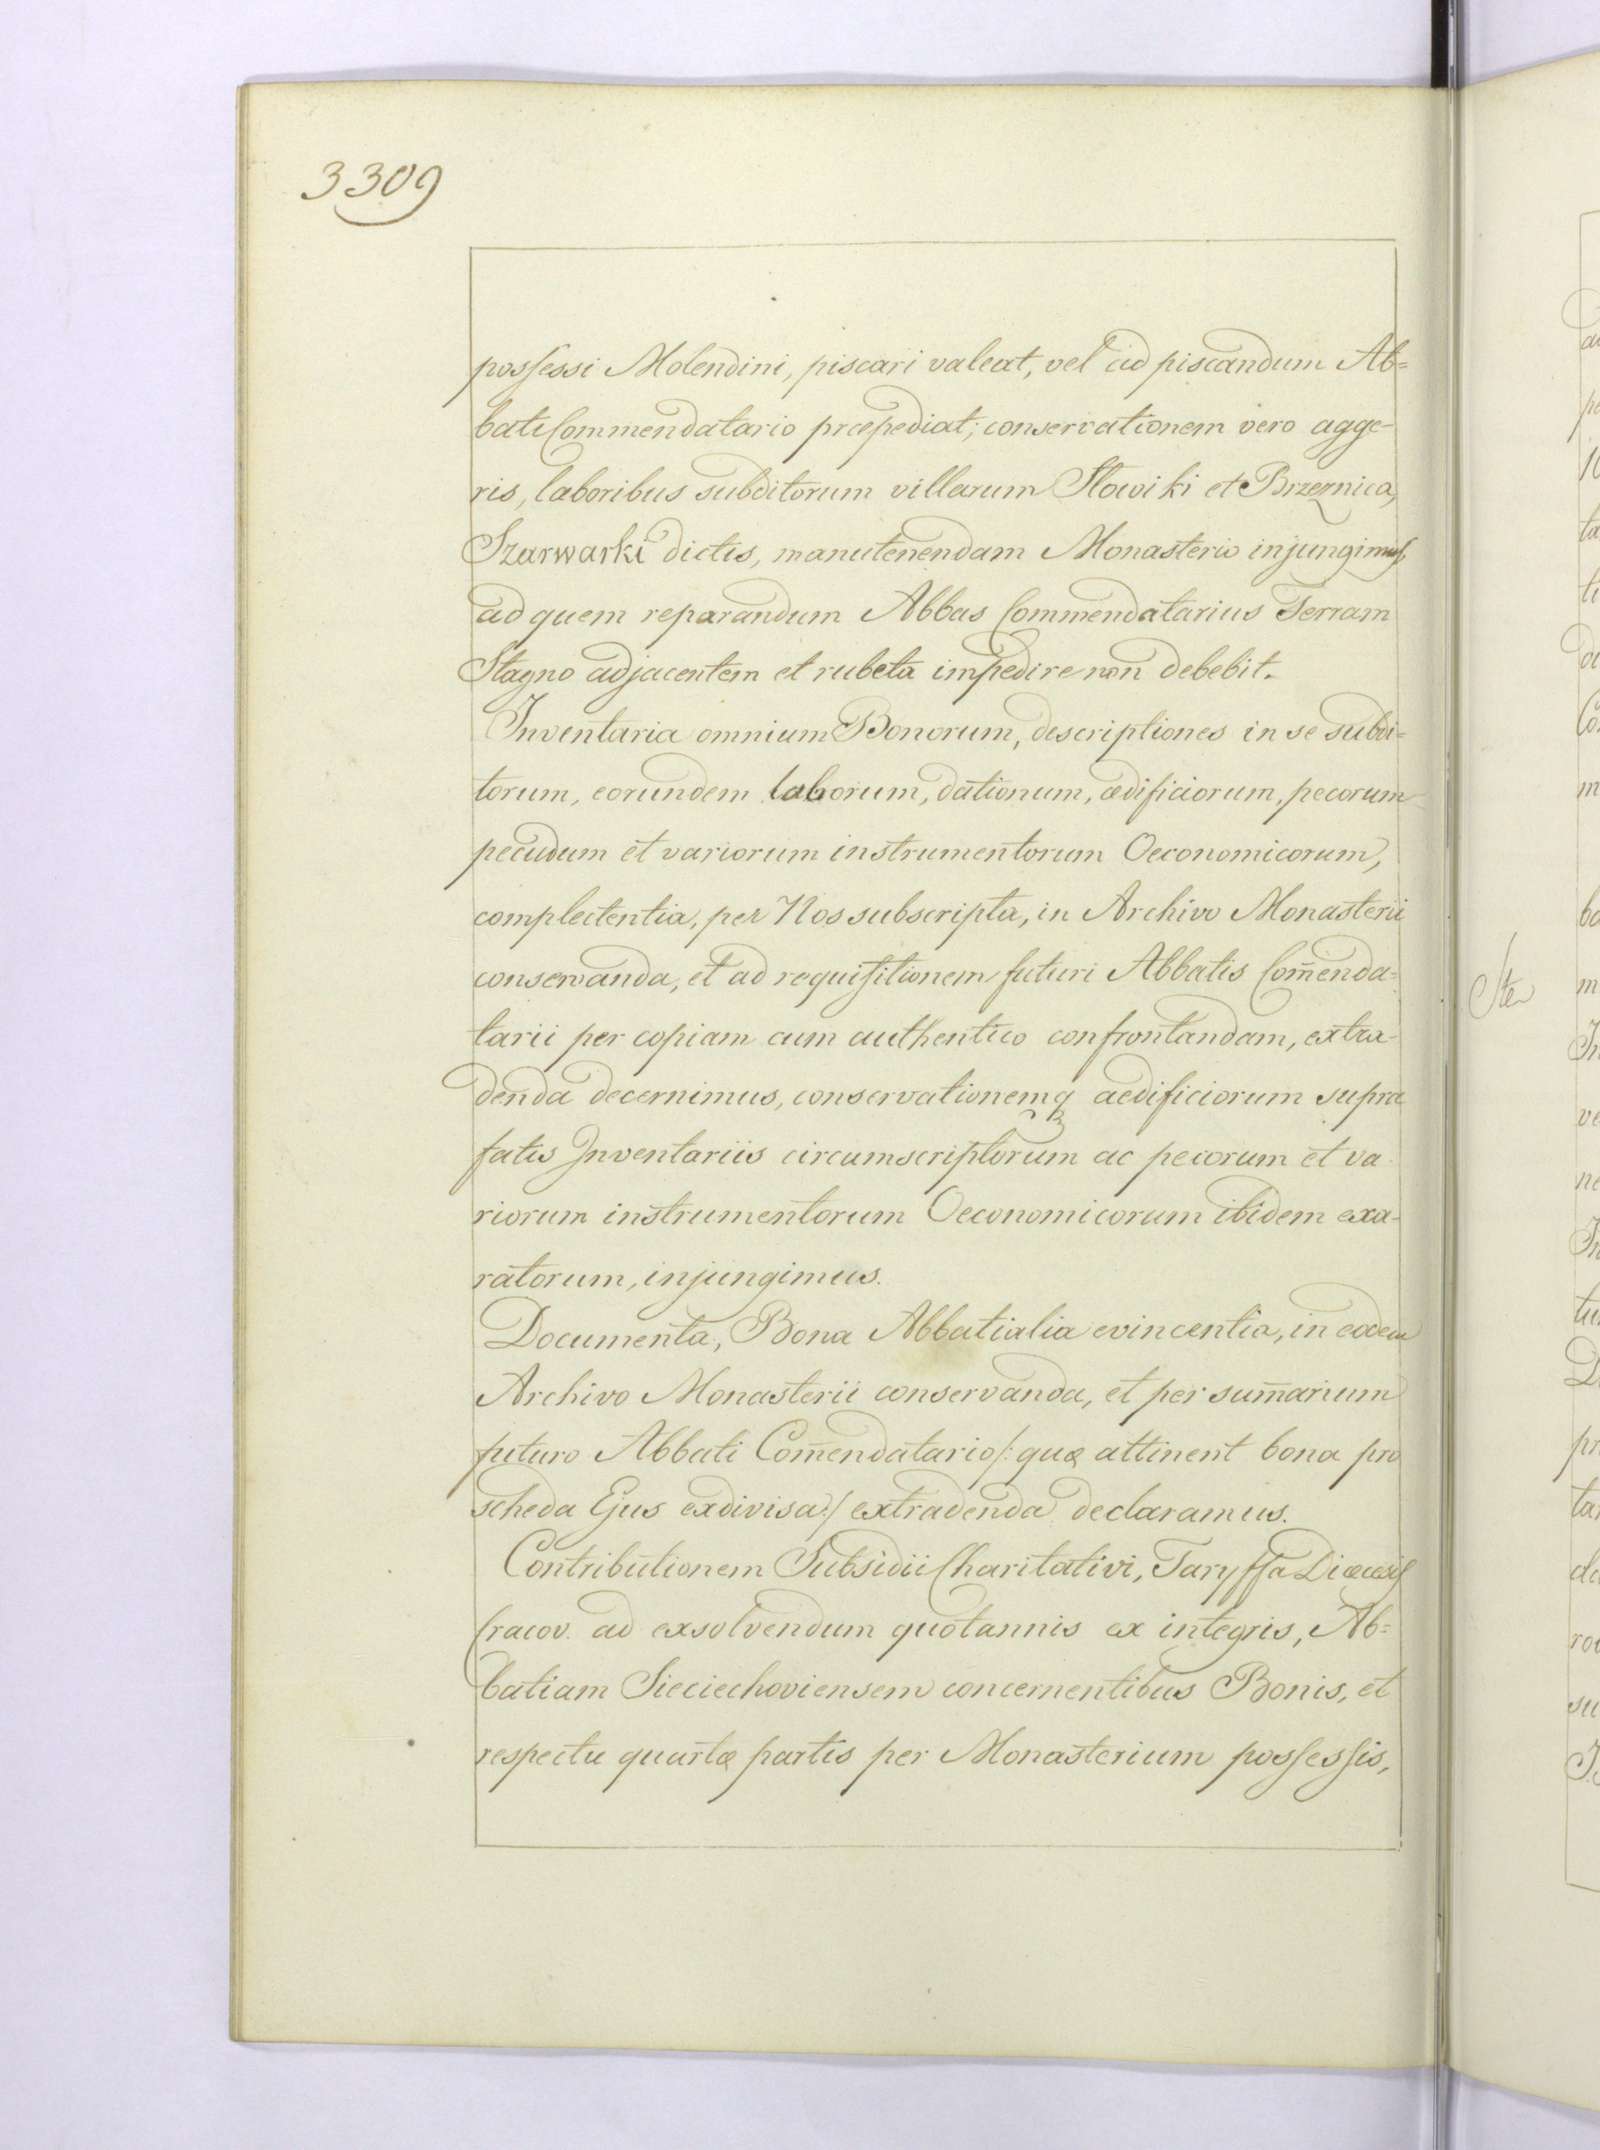 3309
possessi Molendini, piscari valeat, vel ad piscandum Ab=
bati Commendatario præpediat; conservationem vero agge-
ris, laboribus subditorum villarum Słowiki et Brzeznica,
Szarwarki dictis, manutenendam Monasterio injungimus,
ad quem reparandum Abbas Commendatarius Terram
Stagno adjacentem et rubeta impedire non debebit.
Inventaria omnium Bonorum, descriptiones in se subdi=
torum, eorundem laborum, dationum, ædificiorum, pecorum
pecudum et variorum instrumentorum Oeconomicorum,
complectentia, per Nos subscripta, in Archivo Monasterii
conservanda, et ad requisitionem futuri Abbatis Com̄enda=
tarii per copiam cum authentico confrontandam, extra-
denda decernimus, conservationemq aedificiorum supra
fatis Inventariis circumscriptorum ac pecorum et va
riorum instrumentorum Oeconomicorum ibidem exa-
ratorum, injungimus.
Documenta, Bona Abbatialia evincentia, in eodem
Archivo Monasterii conservanda, et per sum̄arium
futuro Abbati Com̄endatario /: quæ attinent bona pro
scheda Ejus exdivisa :/ extradenda declaramus.
Contributionem Subsidii Charitativi, Taryffa Diæcesis
Cracov. ad exsolvendum quotannis ex integris, Ab=
batiam Sieciechoviensem concernentibus Bonis, et
respectu quartæ partis per Monasterium possessis,